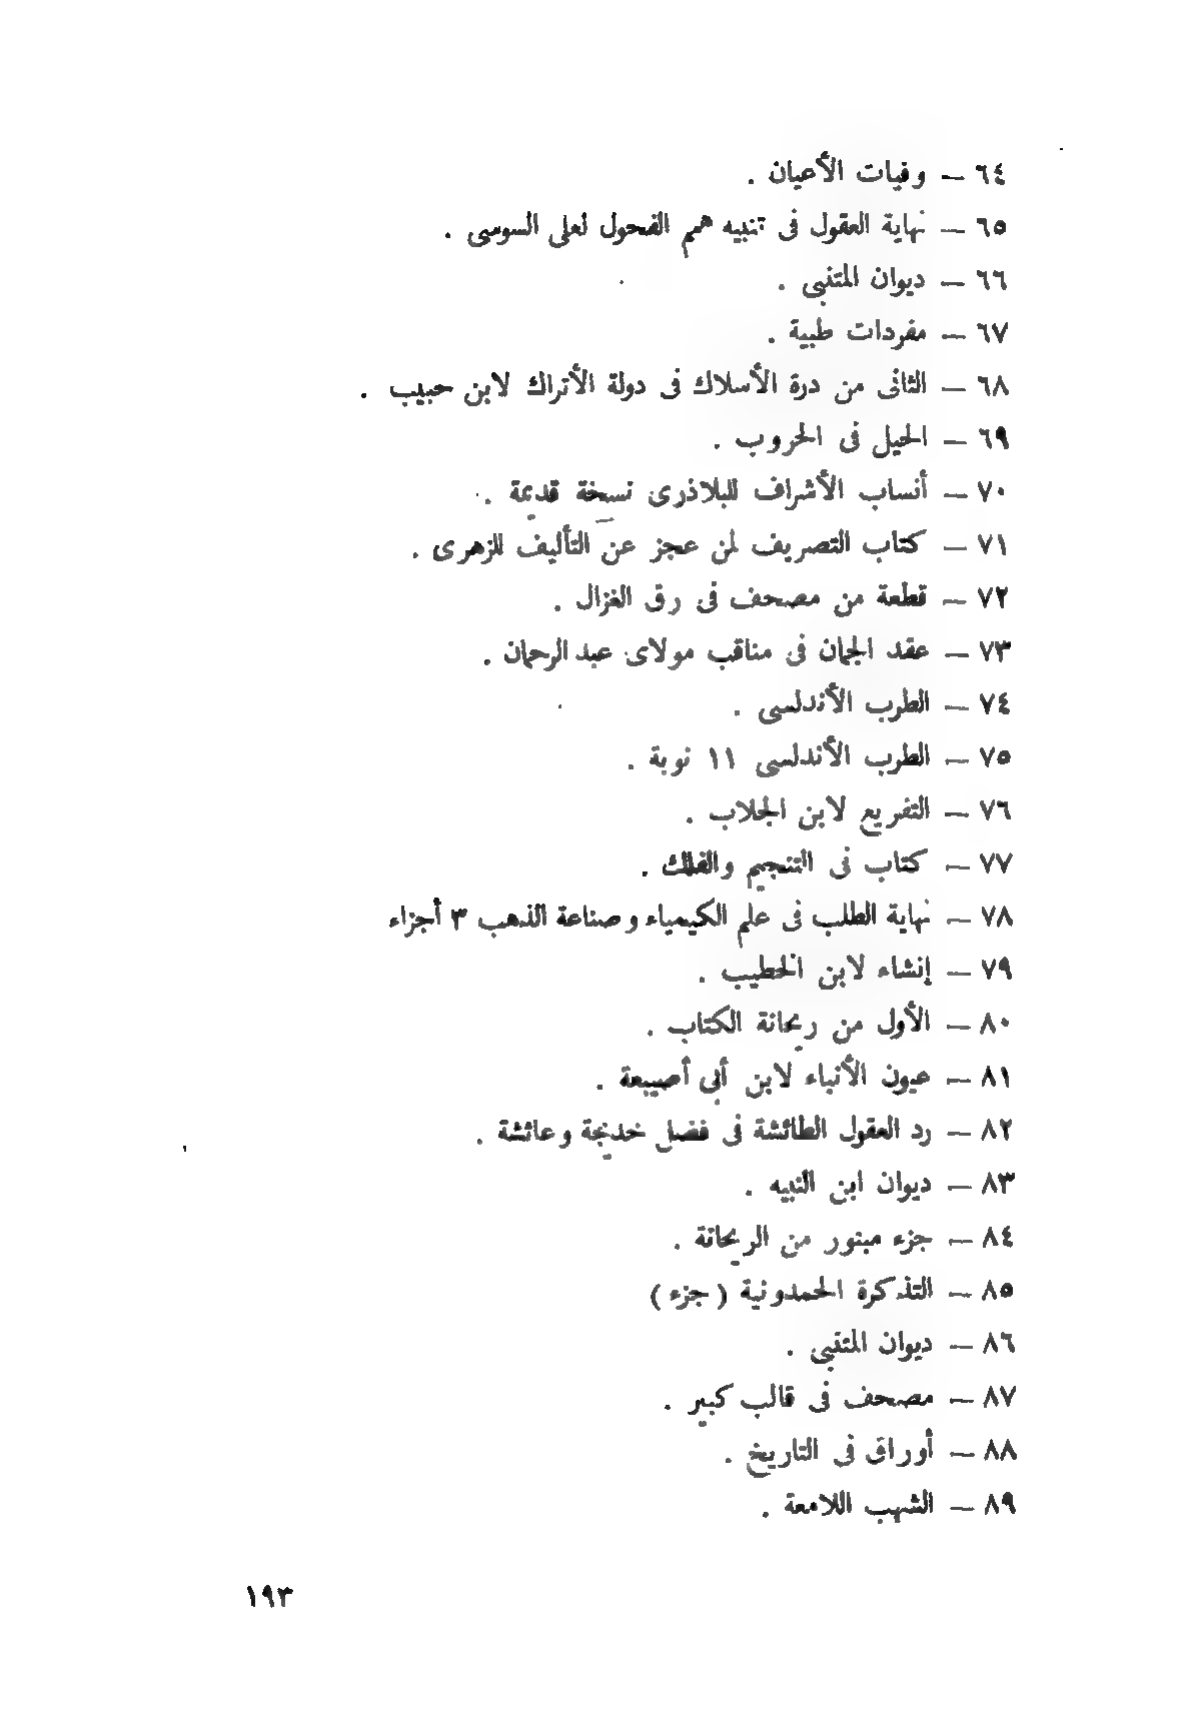 ٦٤ — وفيات الأعيان .
٦٥ — نهاية العقول فى تنبيه همم الفحول لعلى السوسى .
٦٦ — ديوان المتنبى .
٦٧ — مفردات طبية .
٦٨ — الثانى من درة الأسلاك فى دولة الأتراك لابن حبيب .
٦٩ — الحيل فى الحروب .
٧٠ — أنساب الأشراف للبلاذرى نسخة قديمة .
٧١ — كتاب التصريف لمن عجز عن التأليف للزهرى .
٧٢ — قطعة من مصحف فى رق الغزال .
٧٣ — عقد الجمان فى مناقب مولاى عبد الرحمان .
٧٤ — الطرب الأندلسى .
٧٥ — الطرب الأندلسى ١١ نوبة .
٧٦ — التفريع لابن الجلاب .
٧٧ — كتاب فى التنجيم والفلك .
٧٨ — نهاية الطلب فى علم الكيمياء وصناعة الذهب ٣ أجزاء
٧٩ — إنشاء لابن الخطيب .
٨٠ — الأول من ريحانة الكتاب .
٨١ — عيون الأنباء لابن أبى أصيبعة .
٨٢ — رد العقول الطائشة فى فضل خديجة وعائشة .
٨٣ — ديوان ابن النبيه .
٨٤ — جزء مبتور من الريحانة .
٨٥ — التذكرة الحمدونية ( جزء )
٨٦ — ديوان المتنبى .
٨٧ — مصحف فى قالب كبير .
٨٨ — أوراق فى التاريخ .
٨٩ — الشهب اللامعة .
١٩٣